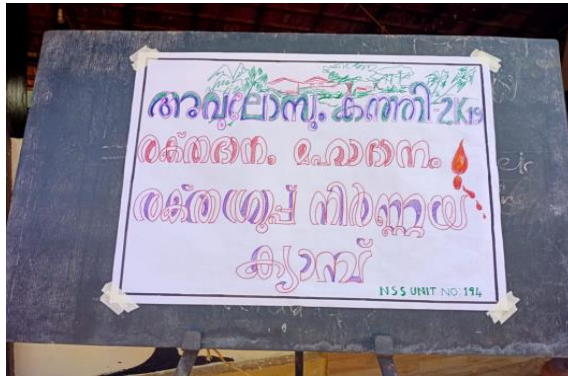 അവുലോസും കഞ്ഞി-2K19
രക്തദാനം മഹാദാനം
രക്തഗ്രൂപ്പ് നിർണ്ണയ
ക്യാമ്പ്
NSS UNIT NO: 194